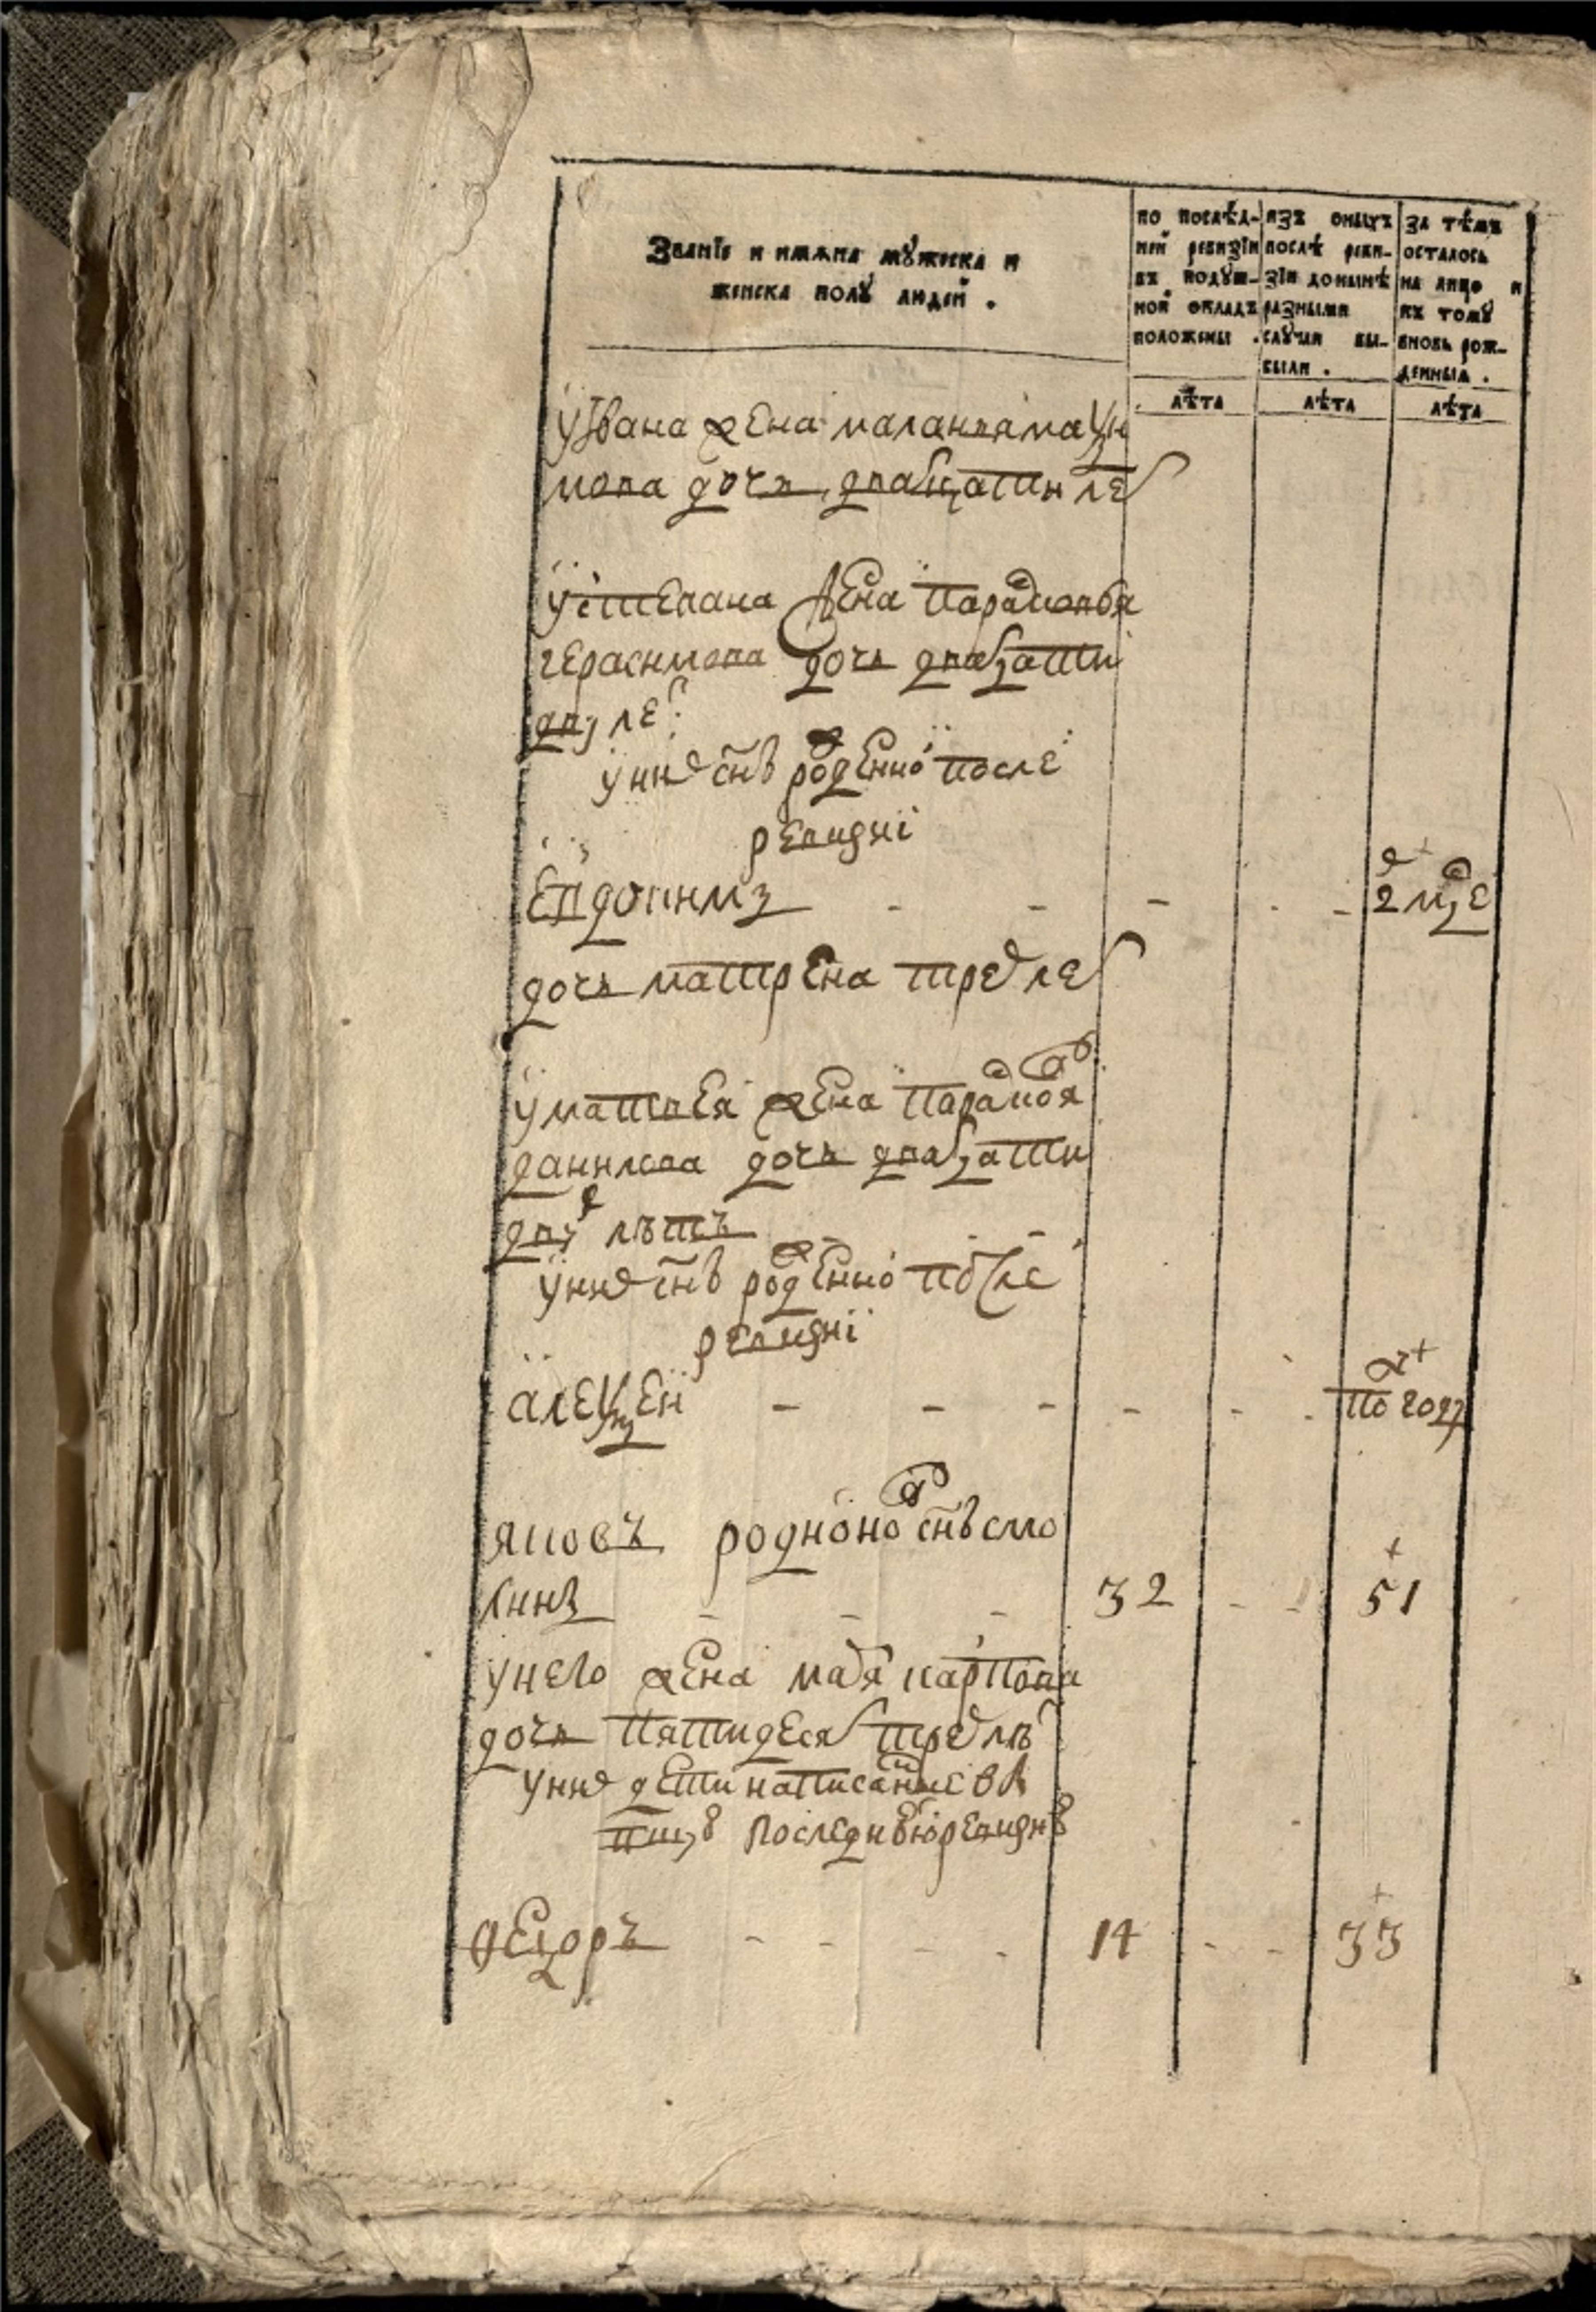 Званїе и имяна мꙋжеска и
женска полꙋ людей .
по послѣд-
ней ревизїи
въ подꙋш-
ной окладъ
положены .
изъ оныхъ
послѣ реви-
зїи донынѣ
разными
слꙋчаи вы-
были .
за тѣмъ
осталось
на лицо и
въ томꙋ
вновь рож-
денныя .
лѣта
лѣта
лѣта
у Ивана жена маланья маѯи
мова дочь двадцати лет
у степана жена парасковья
герасимова дочь двадцати
двух лет
у них снъ рожденно после
ревизиї
евдокимъ - - - - - 2 мце
дочь матрена трех лет
у матвея жена парасковя
данилова дочь двадцати
двух лѣтъ - - -
у них снъ рожденно после
ревизиї
алеѯей - - - - - - по году
яковъ родионо снъ
32 - - 51
у него жена марья карпова
дочь пятидесят трех лѣт
у них дети написанные в
последнюю ревизию
ѳедоръ - - - - 14 - - 33